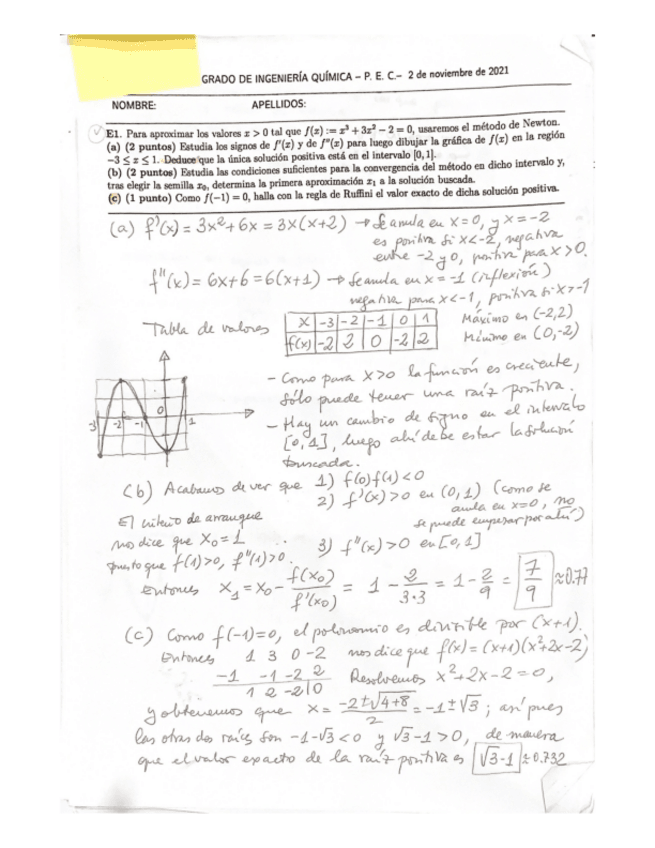 GRADO DE INGENIERÍA QUÍMICA – P. E. C.– 2 de noviembre de 2021
NOMBRE: APELLIDOS:
E1. Para aproximar los valores x > 0 tal que f(x) := x³ + 3x² − 2 = 0, usaremos el método de Newton.
(a) (2 puntos) Estudia los signos de f'(x) y de f''(x) para luego dibujar la gráfica de f(x) en la región
−3 ≤ x ≤ 1. Deduce que la única solución positiva está en el intervalo [0, 1].
(b) (2 puntos) Estudia las condiciones suficientes para la convergencia del método en dicho intervalo y,
tras elegir la semilla x₀, determina la primera aproximación x₁ a la solución buscada.
(c) (1 punto) Como f(−1) = 0, halla con la regla de Ruffini el valor exacto de dicha solución positiva.
(a) f'(x) = 3x²+6x = 3x(x+2) → Se anula en x=0, y x=-2
es positiva si x<-2, negativa
entre -2 y 0, positiva para x>0.
f''(x) = 6x+6 = 6(x+1) → Se anula en x=-1 (inflexión)
negativa para x<-1, positiva si x>-1
Tabla de valores
x -3 -2 -1 0 1
f(x) -2 2 0 -2 2
Máximo en (-2,2)
Mínimo en (0,-2)
-3 -2 -1 0 1
- Como para x>0 la función es creciente,
sólo puede tener una raíz positiva.
- Hay un cambio de signo en el intervalo
[0,1], luego ahí debe estar la solución
buscada.
(b) Acabamos de ver que 1) f(0)f(1)<0
2) f'(x)>0 en (0,1) (como se
anula en x=0, no
se puede empezar por ahí)
3) f''(x)>0 en [0,1]
El criterio de arranque
nos dice que x₀=1
puesto que f(1)>0, f''(1)>0.
Entonces x₁ = x₀ - f(x₀)/f'(x₀) = 1 - 2/3·3 = 1 - 2/9 = 7/9 ≈0.77
(c) Como f(-1)=0, el polinomio es divisible por (x+1).
Entonces 1 3 0 -2 nos dice que f(x) = (x+1)(x²+2x-2)
-1 -1 -2 2 Resolvemos x²+2x-2=0,
1 2 -2 0
y obtenemos que x = -2±√4+8/2 = -1±√3; así pues
las otras dos raíces son -1-√3<0 y √3-1>0, de manera
que el valor exacto de la raíz positiva es √3-1 ≈0.732